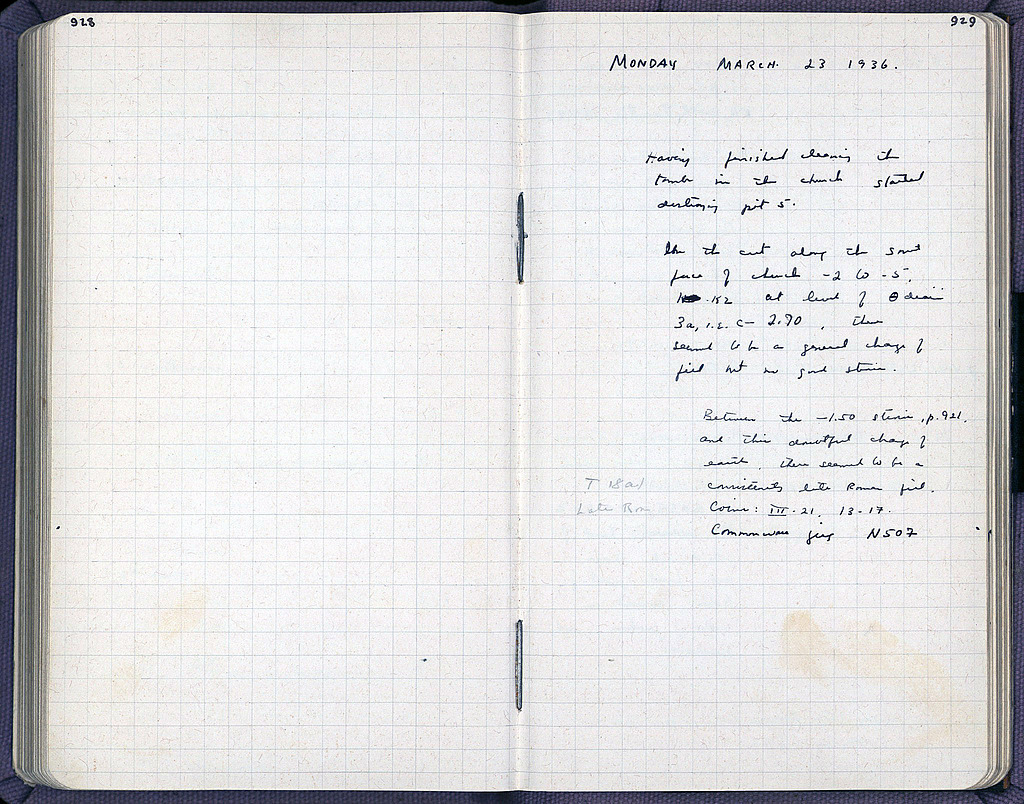 928
929
MONDAY MARCH 23 1936.
Having finished cleaning the
tomb in the church started
destroying pit 5.
the cut along the south
face of church -2 to -5,
152 at level of θ drain
3a, i.e. c- 2.70, there
seemed to be a general change of
fill but no good strosis.
Between the -1.50 , p. 921,
and this doubtful change of
earth, there seemed to be a
consistently late Roman fill.
Coins: III. 21, 13-17.
Commonware jug N507
T 18 a/
Late Rom